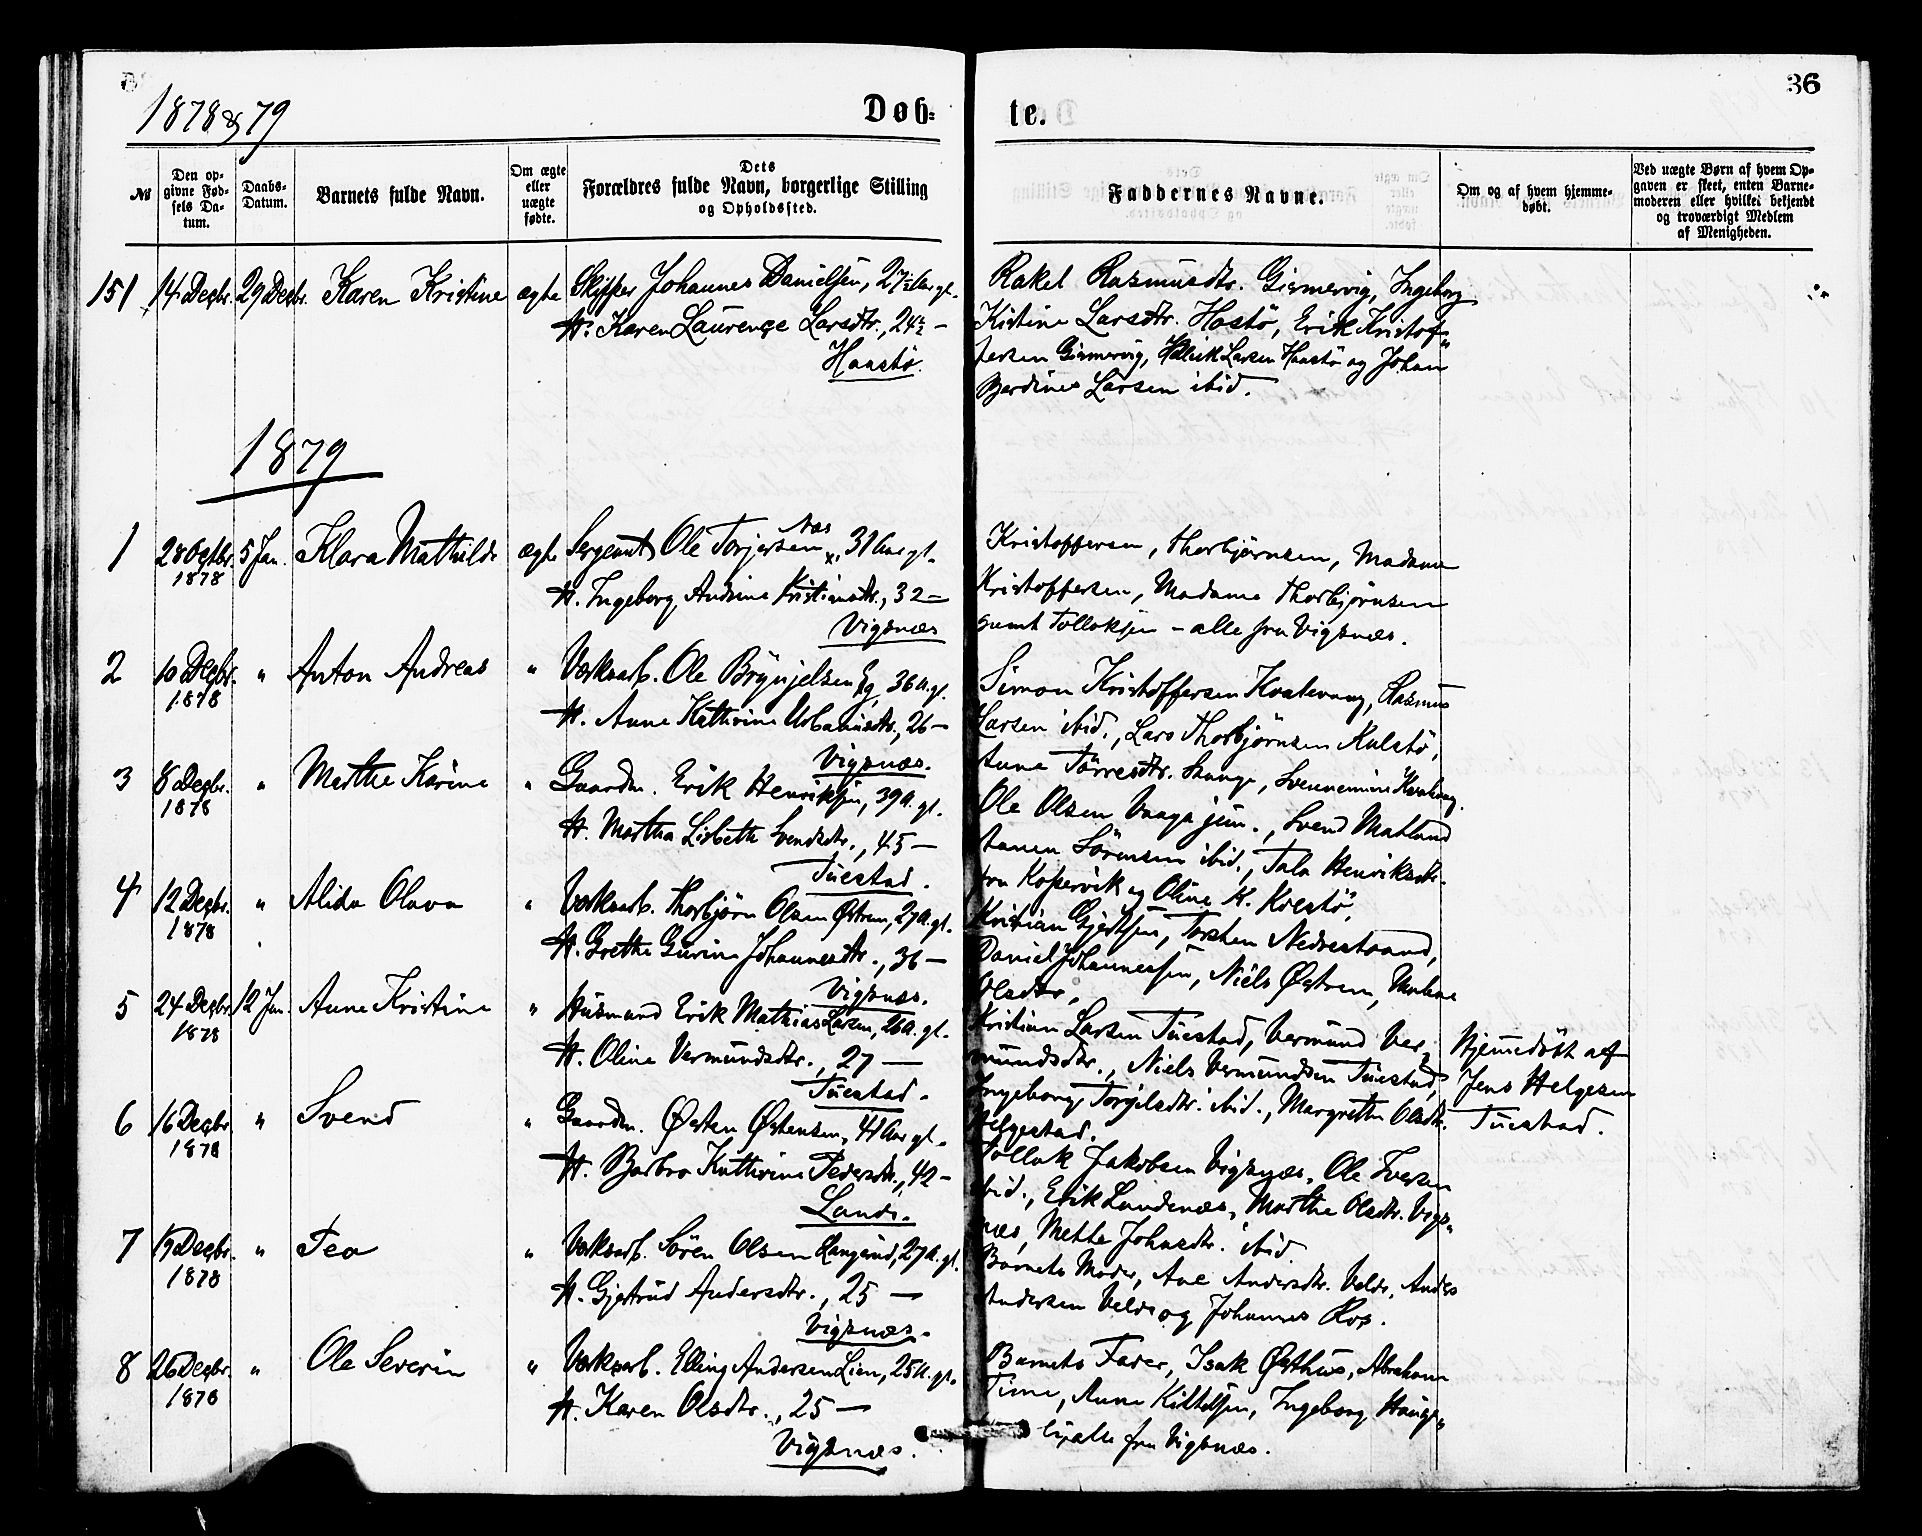 36
1878 & 79
Døb-
te.
№
Den op-
givne Fød-
sels Da-
tum.
Daabs-
Datum.
Barnets fulde Navn.
Om ægte
eller
uægte
fødte.
Dets
Forældres fulde Navn, borgerlige Stilling
og Opholdssted.
Faddernes Navne.
Om og af hvem hjemme-
døbt.
Ved uægte Børn af hvem Op-
gaven er skeet, enten Barne-
moderen eller hvilket bekjendt
og troværdigt Medlem
af Menigheden.
151 14 Decbr. 29 Decbr. Karen Kristine ægte Skipper Johannes Danielsen, 27½ Aar gl.
H. Karen Laurence Larsdtr., 24½ —
Haastø.
Rakel Rasmusdtr. Gismervig, Ingeborg
Kistine Larsdtr. Hastø, Erik Kristof-
fersen Gismervig, Larsen Haastø og Johan
Berdines Larsen ibid.
1879
1 28 Octbr. 5 Jan. Klara Mathilde ægte Sergeant Ole Torjersen Næs, 31 Aar gl.
1878
H. Ingeborg Andrine Kristiansdtr., 32 —
Vigsnæs
Kristoffersen, Thorbjørnsen, Madame
Kristoffersen, Madame Thorbjørnsen
samt Tolloksen – alle fra Vigsnæs.
2 10 Decbr. " Anton Andreas " Værksarb. Ole Brynjelsen Eg, 36 A. gl.
1878
H. Anne Kathrine Urbanusdtr., 26 —
Vigsnæs.
Simon Kristoffersen Kvalevaag, Rasmus
Larsen ibid., Lars Thorbjørnsen Kulstø,
Anne Tørresdtr. Stange, Kvalevaag.
3 8 Decbr. " Marthe Karine " Gaardm. Erik Henriksen, 39 A. gl.
1878
H. Martha Lisbeth Svendsdtr., 45 —
Tuestad.
Ole Olsen Vaaga jun., Svend Matland
Sørensen ibid., Tala Henriksdtr.
fra Kopervik og Oline K. Kvestø.
4 12 Decbr. " Alida Olava " Værksarb. Thorbjørn Olsen Østrem, 27 A. gl.
1878
H. Grethe Gurine Johannesdtr., 36 —
Vigsnæs.
Kristian Gjertsen, Torsten Nedrestrand,
Daniel Johannessen, Niels Østrem, Malene
Olsdtr.
5 24 Decbr. 12 Jan. Anne Kristine " Husmand Erik Mathias Larsen, 26 A. gl.
1878
H. Oline Vermundsdtr., 27 —
Tuestad.
Kristian Larsen Tuestad, Vermund Ver-
mundsdtr., Niels Vermundsen Tuestad,
Ingeborg Torgilsdtr. ibid., Margrethe Olsdtr.
Helgestad.
Hjemmedøbt af
Jens Helgesen
Tuestad.
6 16 Decbr. " Svend " Gaardm. Østen Østensen, 41 Aar gl.
1878
H. Barbro Kathrine Pedersdtr., 42 —
Lande.
Tollak Jakobsen Vigsnæs, Ole Iversen
ibid., Erik Landenæs, Marthe Olsdtr. Vigs-
næs, Mette Johnsdtr. ibid
7 19 Decbr. " Tea " Værksarb. Søren Olsen Langrind, 27 A. gl.
1878
H. Gjertrud Andersdtr., 25 —
Vigsnæs.
Barnets Moder, Ane Andersdtr. Velde, Anders
Andersen Velde og Johannes Ros.
8 26 Decbr. " Ole Severin " Værksarb. Elling Andersen Lien, 25 A. gl.
1878
H. Karen Olsdtr., 25 —
Vigsnæs.
Barnets Fader, Isak Østhus, Abraham
Time, Anne Kittelsen, Ingeborg
alle fra Vigsnæs.